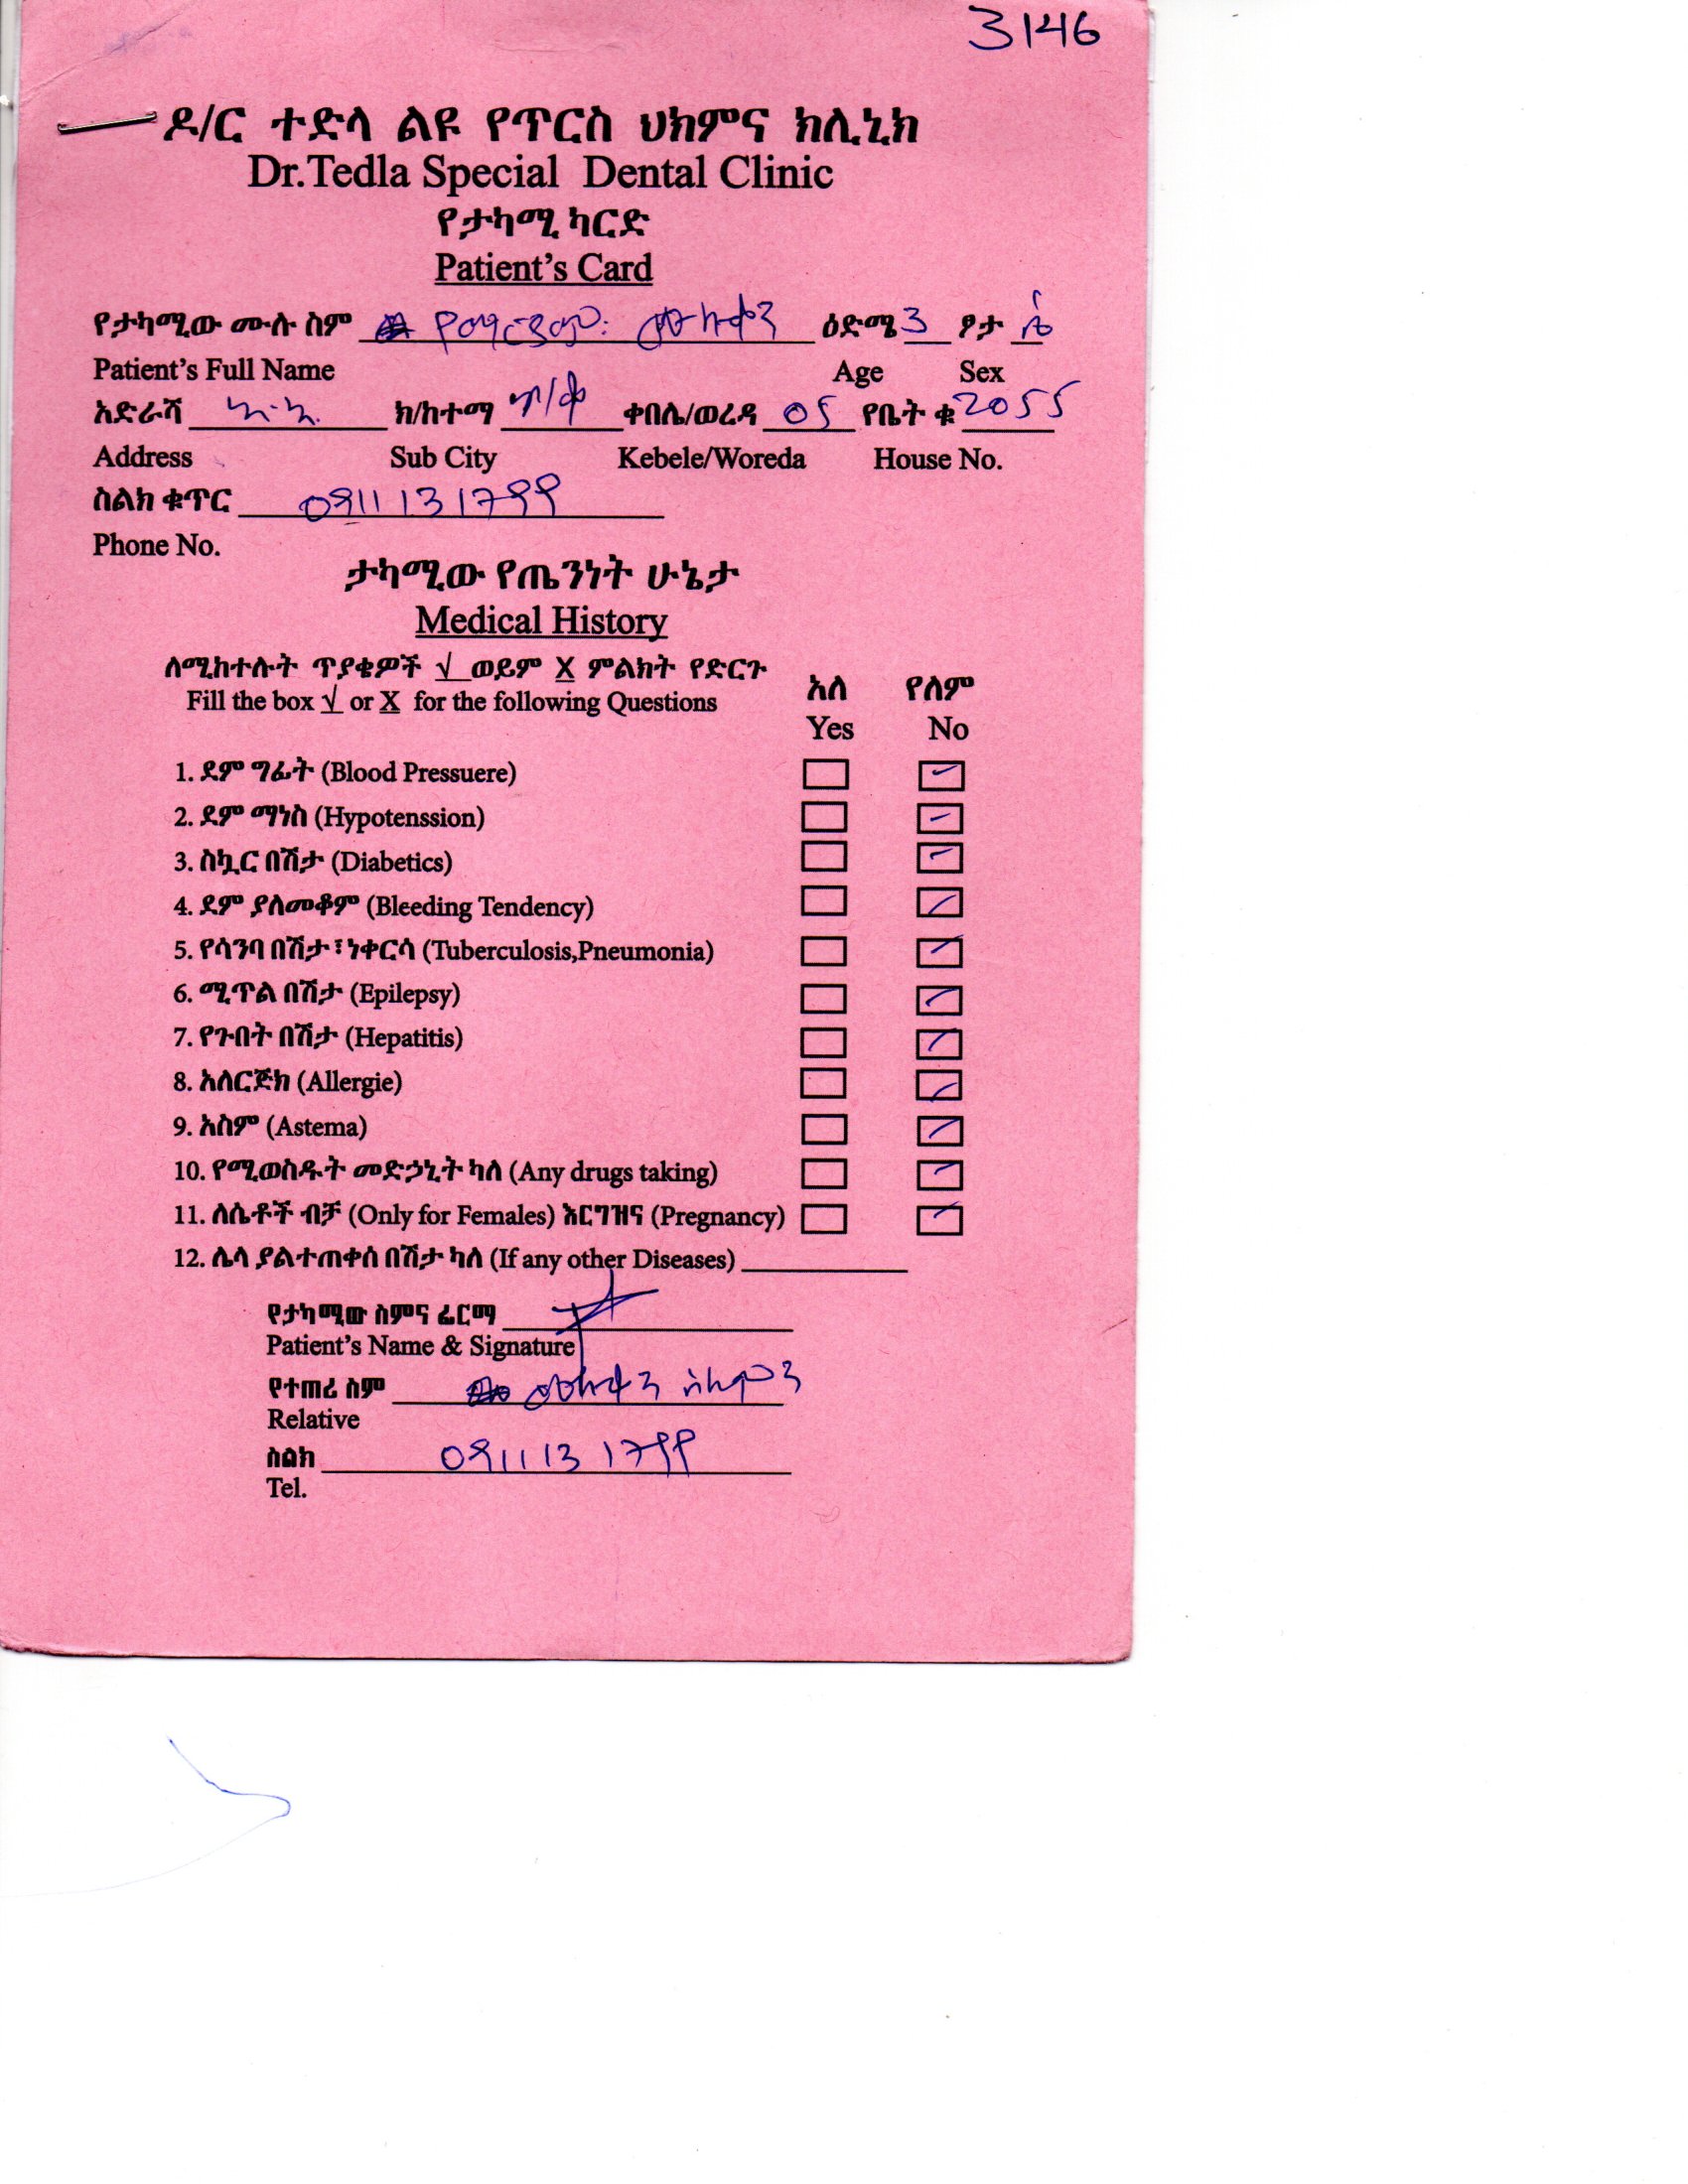 3146
ዶ/ር ተድላ ልዩ የጥርስ ህክምና ክሊኒክ
Dr.Tedla Special Dental Clinic
የታካሚ ካርድ
Patient's Card
የታካሚው ሙሉ ስም ዕድሜ 3 ፆታ ሴ
Patient's Full Name Age Sex
አድራሻ አ.አ. ክ/ከተማ ቀበሌ/ወረዳ 05 የቤት ቁ 2055
Address Sub City Kebele/Woreda House No.
ስልክ ቁጥር 0911131799
Phone No.
ታካሚው የጤንነት ሁኔታ
Medical History
ለሚከተሉት ጥያቄዎች √ ወይም X ምልክት የድርጉ
Fill the box √ or X for the following Questions
አለ የለም
Yes No
1. ደም ግፊት (Blood Pressuere)
2. ደም ማነስ (Hypotenssion)
3. ስኳር በሽታ (Diabetics)
4. ደም ያለመቆም (Bleeding Tendency)
5. የሳንባ በሽታ፣ነቀርሳ (Tuberculosis,Pneumonia)
6. ሚጥል በሽታ (Epilepsy)
7. የጉበት በሽታ (Hepatitis)
8. አለርጅክ (Allergie)
9. አስም (Astema)
10. የሚወስዱት መድኃኒት ካለ (Any drugs taking)
11. ለሴቶች ብቻ (Only for Females) እርግዝና (Pregnancy)
12. ሌላ ያልተጠቀሰ በሽታ ካለ (If any other Diseases)
የታካሚው ስምና ፊርማ
Patient's Name & Signature
የተጠሪ ስም
Relative
ስልክ 0911131799
Tel.